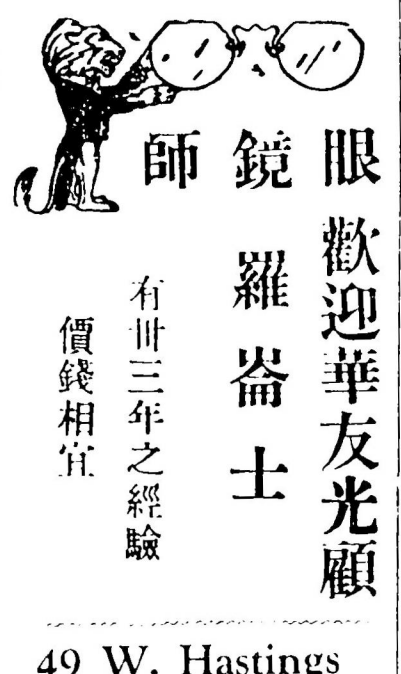 眼鏡師
歡迎華友光顧
羅崙士
有卅三年之經驗
價錢相宜
49 W. Hastings